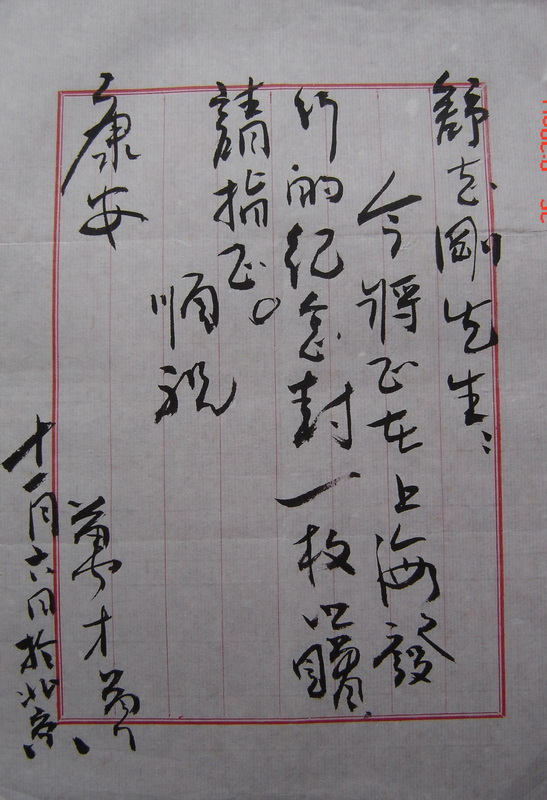 舒志剛先生：
今將正在上海發
行的紀念封一枚以贈
請指正。
順祝
康安
十一月六日於北京